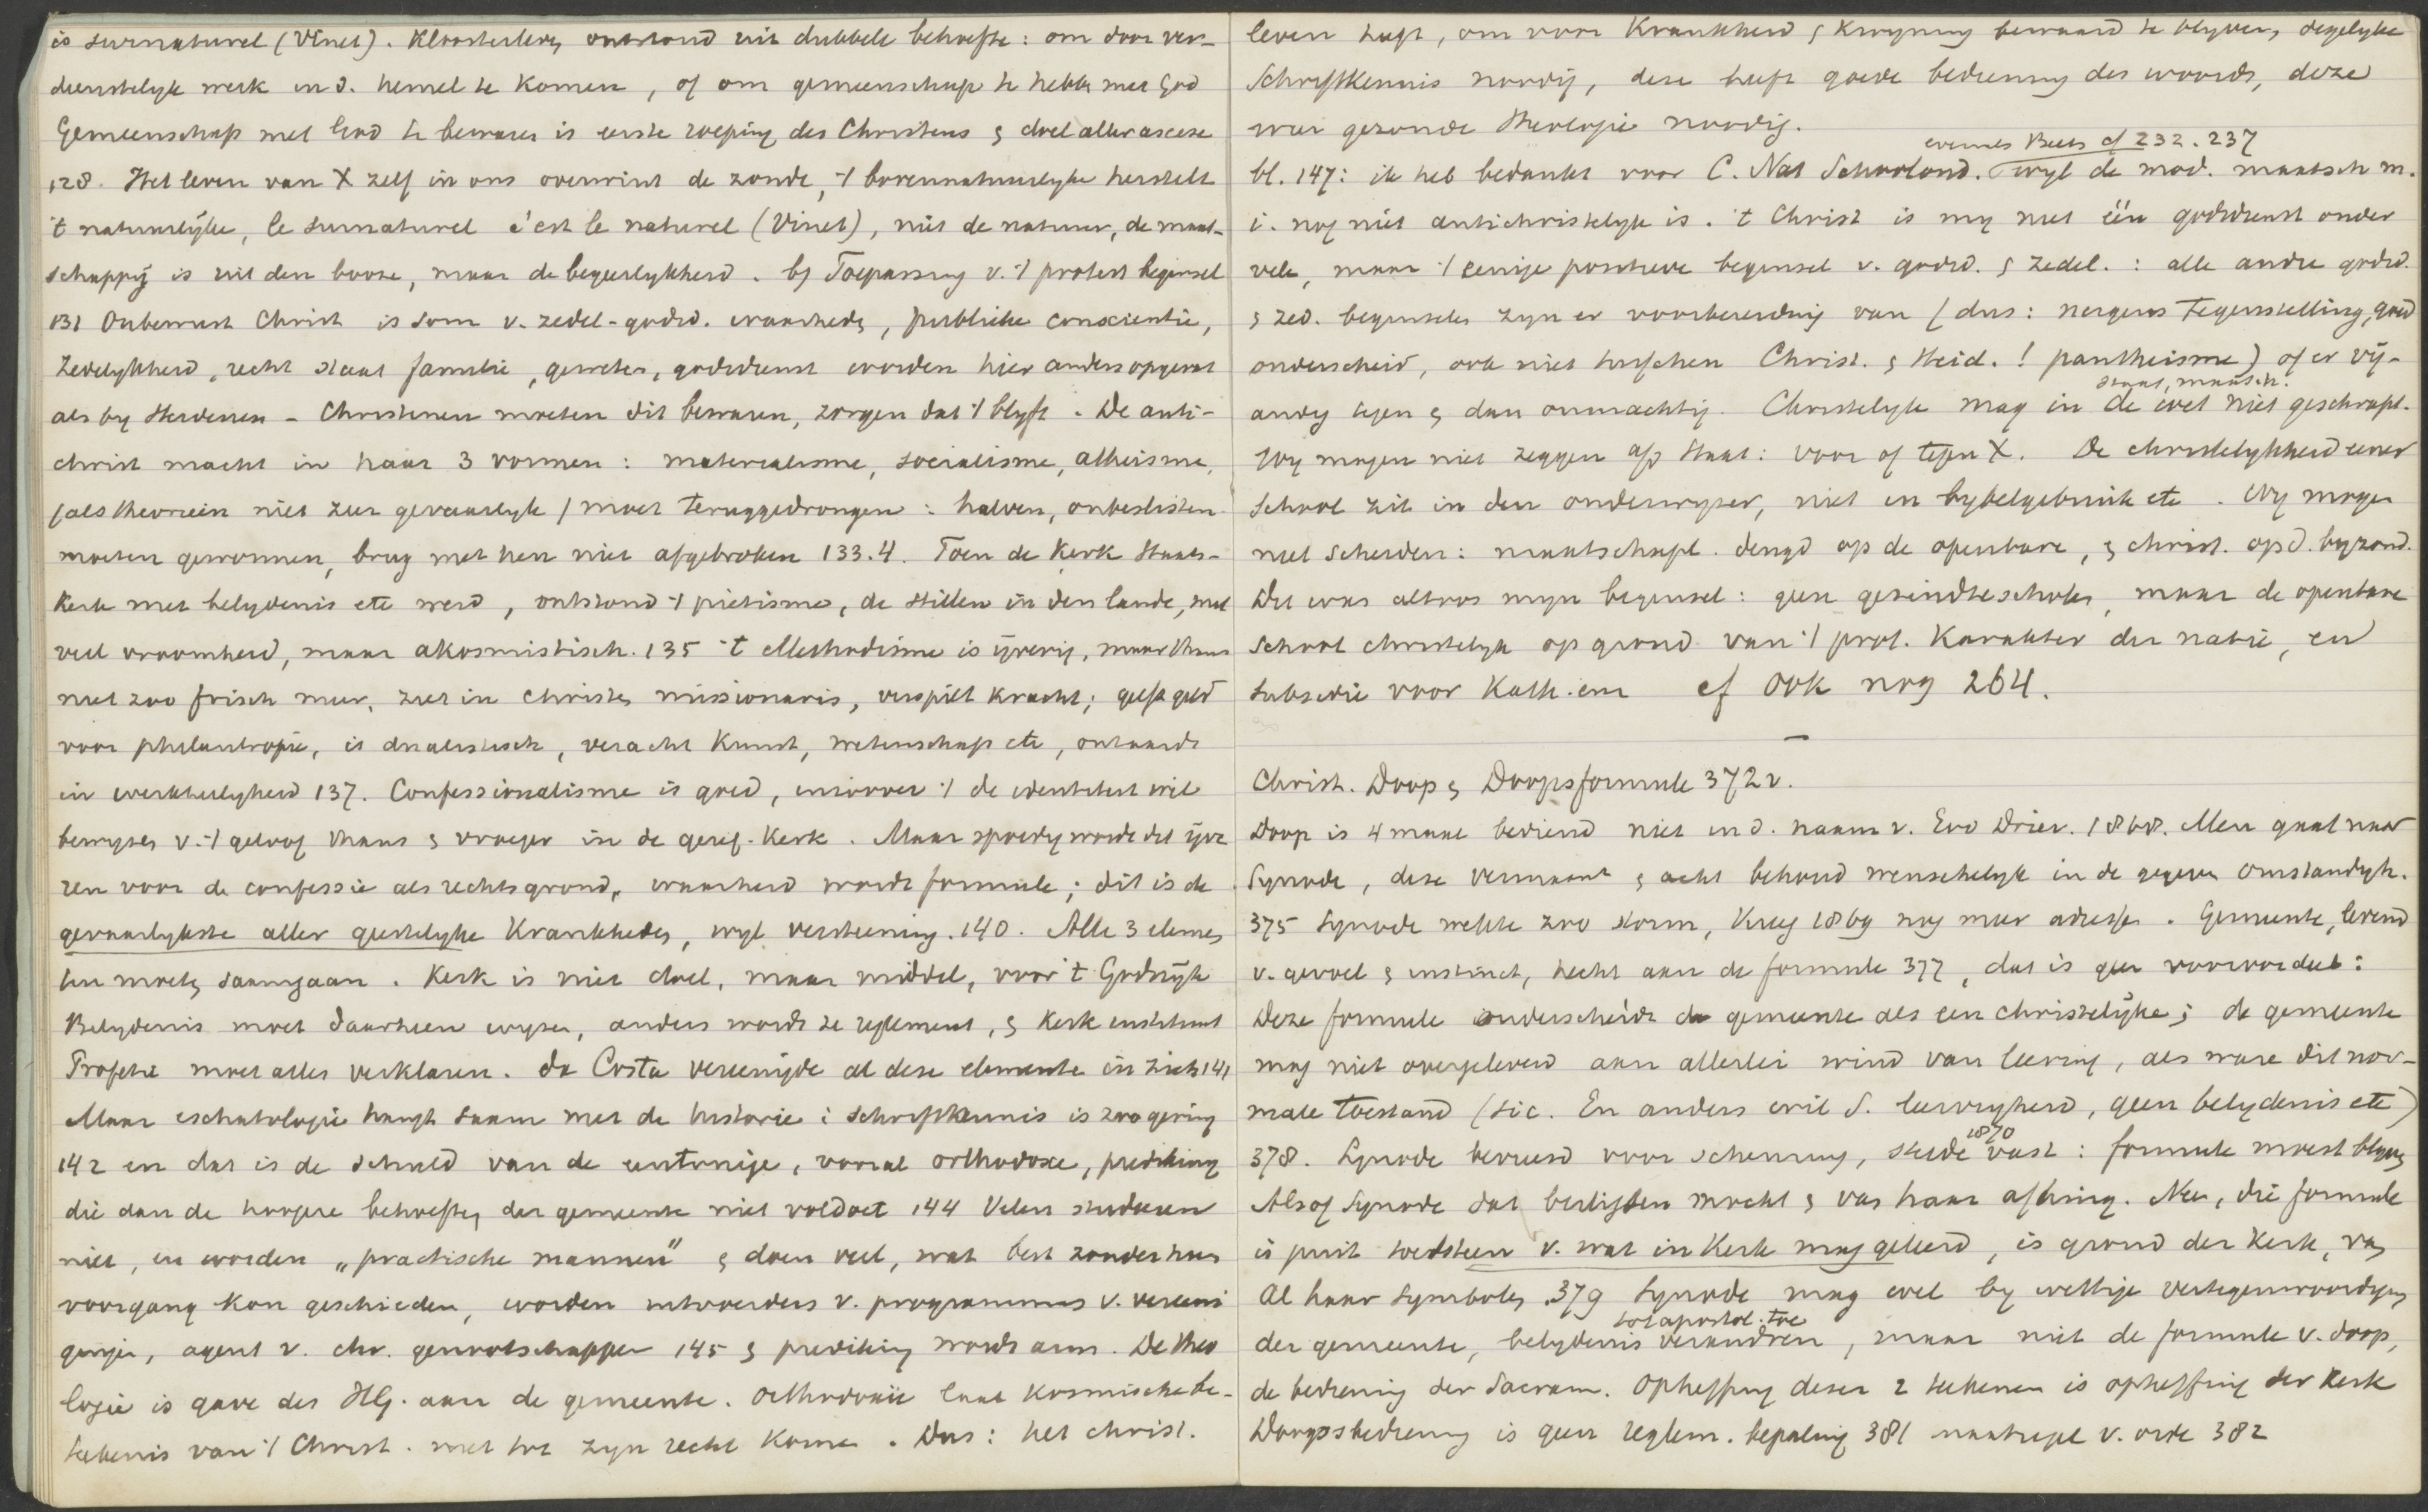 is surnaturel (Vinet). Kloosterleven ontstond uit dubbele behoefte: om door ver-
dienstelyk werk in d. hemel te komen, of om gemeenschap te hebben met God
Gemeenschap met God te bewaren is eerste roeping des Christens & doel aller ascese
128. Het leven van X zelf in ons overwint de zonde, 't bovennatuurlyke herstelt
't natuurlyke, le surnaturel c'est le naturel (Vinet), niet de natuur, de maat-
schappij is uit den booze, maar de begeerlykheid. by Toepassing v. 't protest beginsel
131 Onbewust Christ is som v. zedel-godsd. waarheden, publieke conscientie,
Zedelykheid, recht staat familie, geweten, godsdienst worden hier anders opgevat
als by Heidenen - Christenen moeten dit bewaren, zorgen dat 't blyft. De anti-
christ macht in haar 3 vormen: materialisme, socialisme, atheisme,
(als theorieën niet zeer gevaarlyk) moet teruggedrongen: halven, onbeslisten
moeten gewonnen, brug met hen niet afgebroken 133.4. Toen de Kerk Staats-
Kerk met belydenis etc werd, ontstond 't pietisme, de stillen in den lande, met
veel vroomheid, maar akosmistisch. 135 't Methodisme is ijverig, maar thans
niet zoo frisch meer, ziet in Christen missionaris, verspilt kracht; geeft geld
voor philantropie, is dualistisch, veracht Kunst, wetenschap etc, ontaardt
in werkheiligheid 137. Confessionalisme is goed, inzoover 't de identiteit wil
bewyzen v. 't geloof thans & vroeger in de geref. Kerk. Maar spoedig wordt dit ijve
ren voor de confessie als rechtsgrond, waarheid wordt formule; dit is de
gevaarlykste aller geestelyke Krankheden, wyl versteening. 140. Alle 3 elemen
ten moeten saamgaan. Kerk is niet doel, maar middel, voor 't Godsryk
Belydenis moet daarheen wyzen, anders wordt ze reglement, & Kerk instituut
Profetie moet alles verklaren. da Costa vereenigde al deze elementen in zich 141
Maar eschatologie hangt saam met de historie: schriftkennis is zoo gering
142 en dat is de schuld van de eentonige, vooral orthodoxe, prediking
die dan de hoogere behoeften der gemeente niet voldoet 144 Velen studeeren
niet, en worden „practische mannen" & doen veel, wat best zonder hun
voorgang kon geschieden, worden uitvoerders v. programmas v. vereeni
gingen, agent v. chr. genootschappen 145 & prediking wordt arm. De theo
logie is gave des HG. aan de gemeente. Orthodoxie laat kosmische be-
teekenis van 't Christ. niet tot zyn recht komen. Dus: het christ.
leven heeft, om voor Krankheid & Kwyning bewaard te blyven, degelyke
Schriftkennis noodig, deze heeft goede bediening des woords, deze
weer gezonde theologie noodig.
evenals Beets cf 232. 237
bl. 147: ik heb bedankt voor C. Nat Schoolond. wyl de mod. maatsch m.
i. nog niet antichristelyk is. 't Christ is my niet één godsdienst onder
vele, maar 't eenige positieve beginsel v. godsd. & zedel.: alle andre godsd.
& zed. beginselen zyn er voorbereiding van (dus: nergens tegenstelling, goed
onderscheid, ook niet tusschen Christ. & Heid.! pantheisme) of er vij-
staat, maatsch.
andig tegen & dan onmachtig. Christelyk mag in de wet niet geschrapt.
Wy mogen niet zeggen op Staat: voor of tegen X. De christelykheid eener
School zit in den onderwyzer, niet in bybelgebruik etc. Wy mogen
niet scheiden: maatschapl. deugd op de openbare, & christ. op d. byzond.
Dit was altoos myn beginsel: geen gezindtescholen, maar de openbare
School christelyk op grond van 't prot. Karakter der natie, en
subsidie voor Kath. en cf ook nog 264.
—
Christ. Doop & Doopsformule 372 v.
Doop is 4 maal bediend niet in d. naam v. God Drieë. 1868. Men gaat naar
Synode, deze vermaant & acht behoud wenschelyk in de gegeven omstandigh.
375 Synode wekte zoo storm, Kreeg 1869 nog meer adressen. Gemeente, levend
v. gevoel & instinct, hecht aan de formule 377, dat is geen vooroordeel:
Deze formule onderscheidt de gemeente als een christelijke; de gemeente
mag niet overgeleverd aan allerlei wind van leering, als ware dit nor-
male toestand (sic. En anders wil S. leervryheid, geen belydenis etc)
1870
378. Synode bevreesd voor scheuring, stelde vast: formule moest blyven
Alsof Synode dat beslissen mocht & van haar afhing. Neen, die formule
is juist toetssteen v. wat in Kerk mag geleerd, is grond der Kerk, van
al haar symbolen 379 Synode mag wel by wettige vertegenwoordiging
tot apostol. toe
der gemeente, belydenis verandren, maar niet de formule v. doop,
de bediening der Sacram. Opheffing dezer 2 teekenen is opheffing der Kerk
Doopsbediening is geen reglem. bepaling 381 maatregel v. orde 382